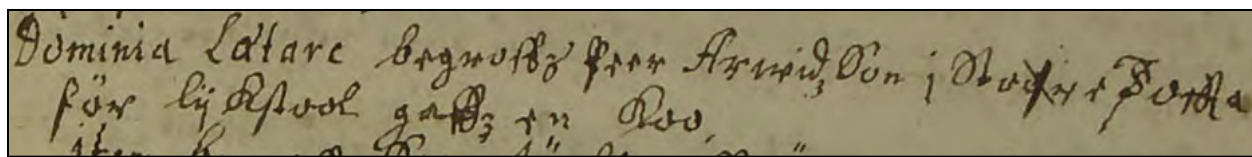 Dominia Lætare begroffz Peer Arwidz Son i Stoore
för lijkstool gaffz en Koo.